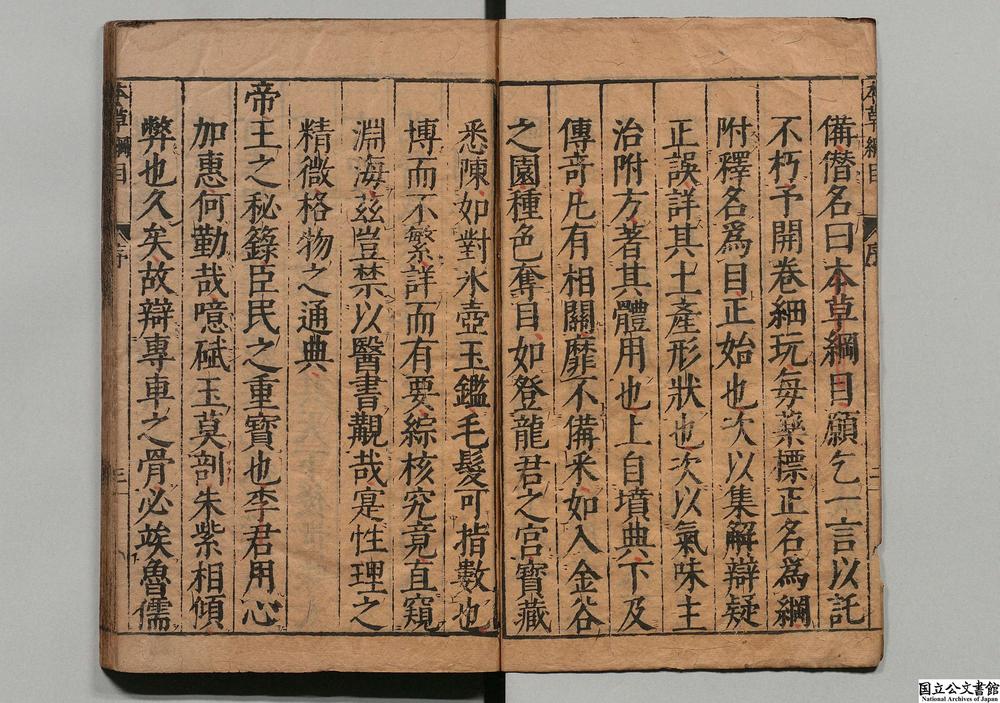 備僭名曰本草綱目願乞一言以託
不朽予開卷細玩每藥標正名為綱
附釋名爲目正始也次以集解辯疑
正誤詳其土產形狀也次以氣味主
治附方著其體用也上自墳典下及
傳奇凡有相關靡不備采如入金谷
之園種色奪目如登龍君之宮寶藏
悉陳如對氷壺玉鑑毛髮可指數也
博而不繁詳而有要綜核究竟直窺
淵海茲豈禁以醫書覯哉寔性理之
精微格物之通典
帝王之秘籙臣民之重寶也李君用心
加惠何勤哉噫碔玉莫剖朱紫相傾
弊也久矣故辯專車之骨必竢魯儒
本草綱目
序
二
本草綱目
序
三
国立公文書館
National Archives of Japan